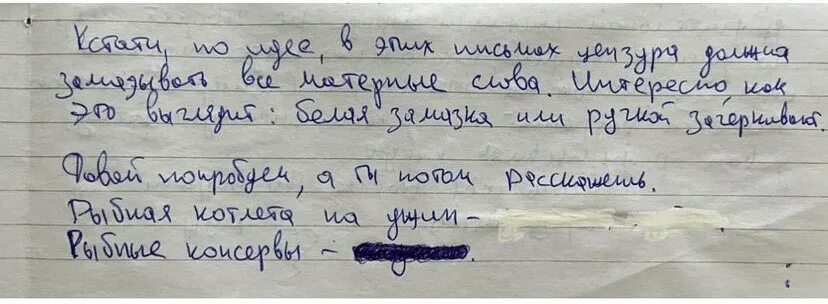 Кстати, по идее, в этих письмах цензура должна
замазывать все матерные слова. Интересно как
это выглядит: белая замазка или ручкой зачеркивают.
Давай попробуем, а ты потом расскажешь.
Рыбная котлета на ужин -
Рыбные консервы - .